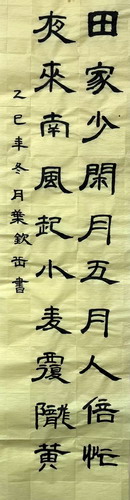 田家少閑月五月人倍忙
夜來南風起小麦覆隴黄
乙巳年冬月葉欽岳書